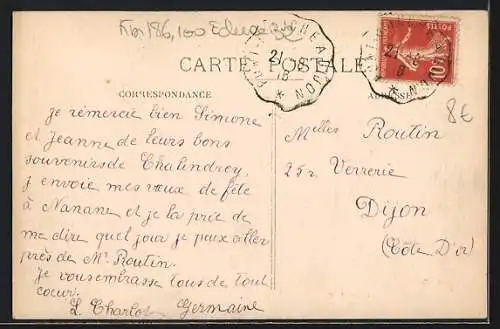 CARTE POSTALE
CORRESPONDANCE
ADRESSE
8€
je remercie bien Simone
et Jeanne de leurs bons
souvenirs de Chalindrey.
j envoie mes vœux de fête
à Nanane et je la prie de
me dire quel jour je peux aller
près de Mr. Routin.
Je vous embrasse tous de tout
cœur.
L. Charlot Germaine
Melles Routin
25r Verrerie
Dijon
(Côte D'or)